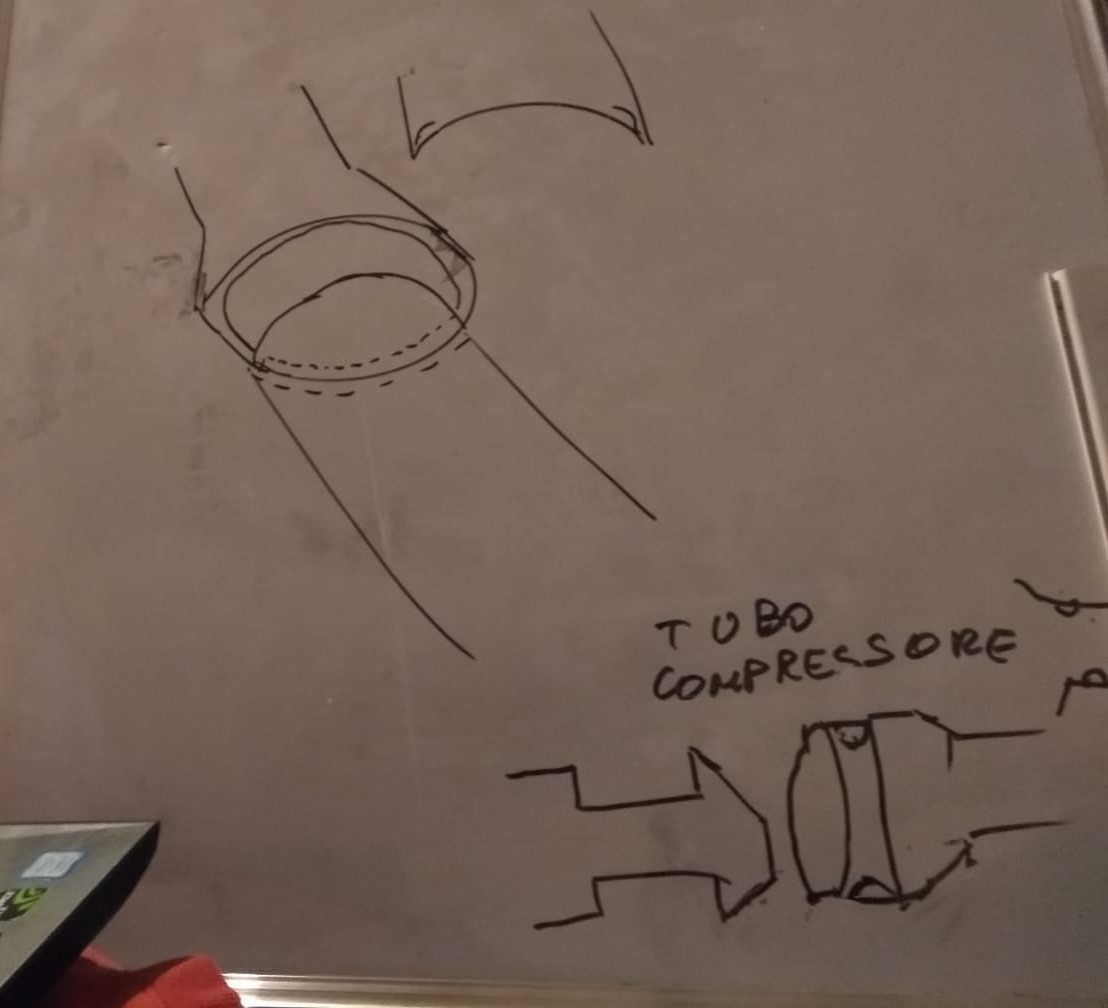 TUBO
COMPRESSORE